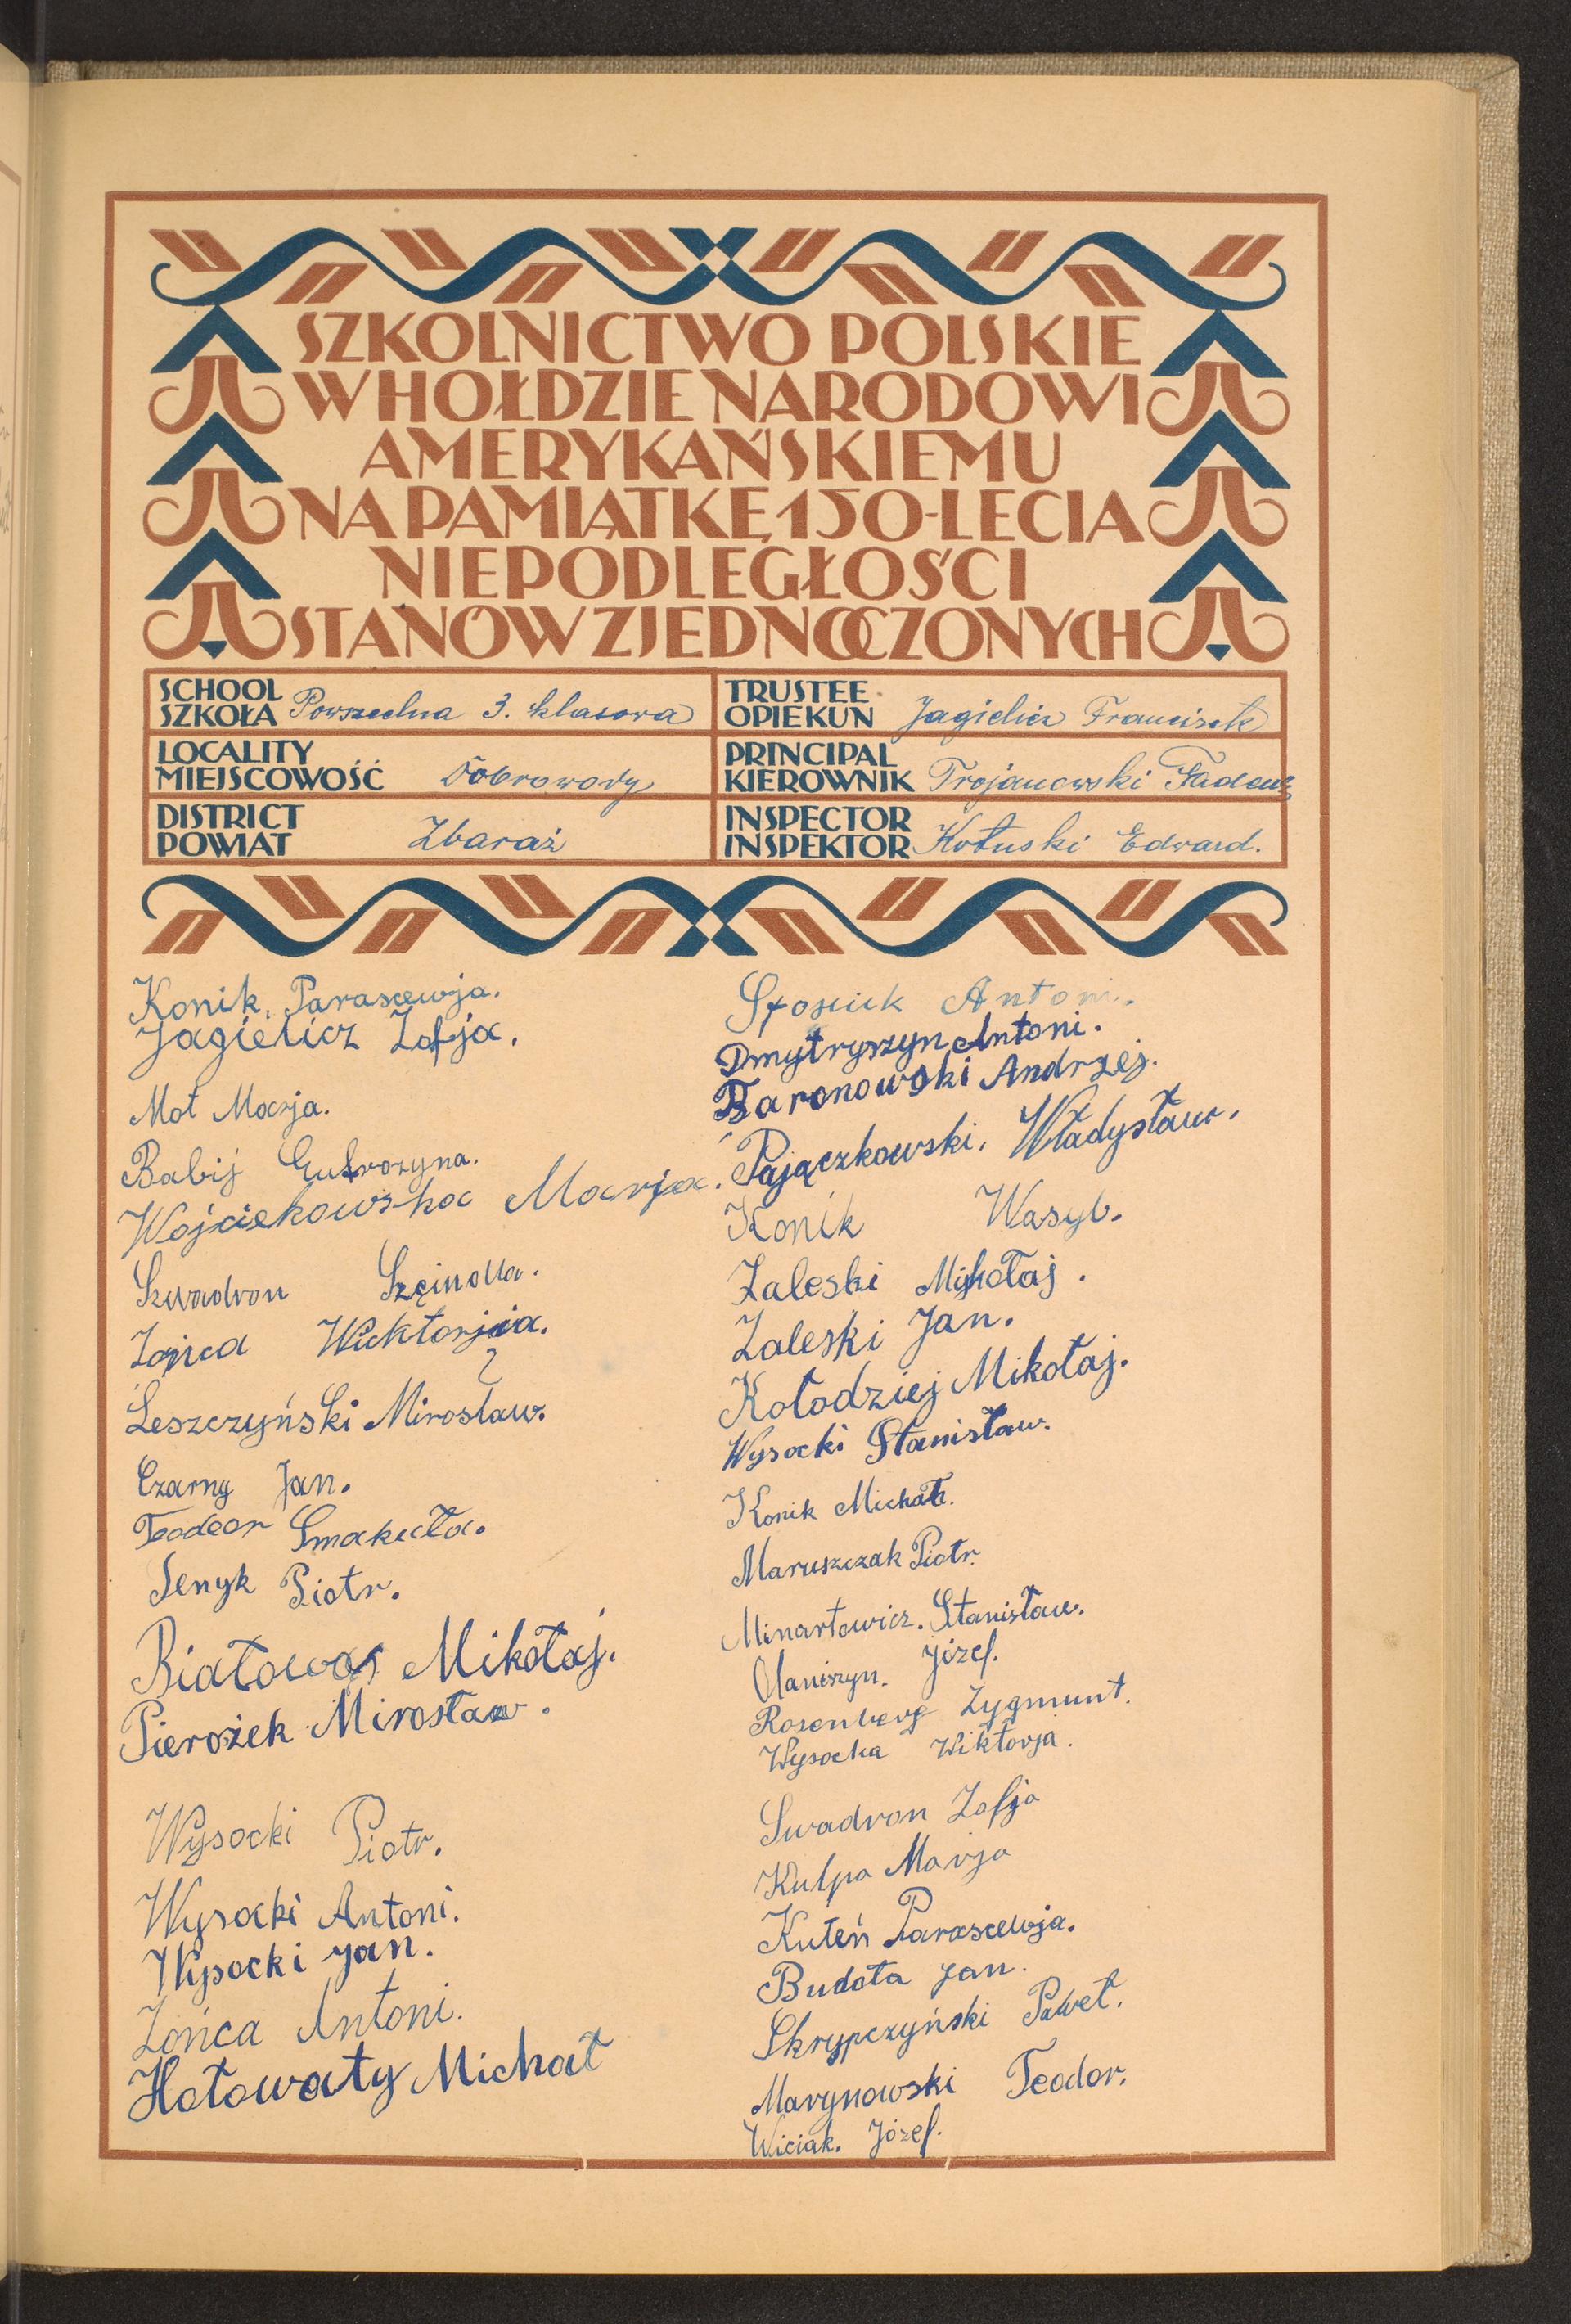 SZKOLNICTWO POLSKIE
W HOŁDZIE NARODOWI
AMERYKAŃSKIEMU
NA PAMIĄTKĘ 150-LECIA
NIEPODLEGŁOŚCI
STANÓW ZJEDNOCZONYCH
SCHOOL
SZKOŁA Powszechna 3. klasowa
TRUSTEE
OPIEKUN Jagielicz Franciszek
LOCALITY
MIEJSCOWOŚĆ Dobrowody
PRINCIPAL
KIEROWNIK Trojanowski Tadeusz
DISTRICT
POWIAT Zbaraż
INSPECTOR
INSPEKTOR Kotuski Edward.
Konik, Parascewja.
Jagielicz Zofja.
Mot Marja.
Babij
Wojciekowska Marja.
Szwadron
Zońca Wicktorja.
Leszczyński Miroslaw.
Czarny Jan.
Teodeor Smakuła.
Senyk Piotr.
Białowąs Mikołaj.
Pierożek Mirosław.
Wysocki Piotr.
Wysocki Antoni.
Wysocki Jan.
Zońca Antoni.
Hołowaty Michał
Antoni.
Dmytryszyn Antoni.
Baronowski Andrzej.
Pajączkowski. Władysław.
Konik Wasyl.
Zaleski Mikołaj.
Zaleski Jan.
Kołodziej Mikołaj.
Wysocki Stanisław.
Konik Michał.
Maruszczak Piotr.
Minartowicz. Stanisław.
Józef.
Rosenberg Zygmunt.
Wysocka Wiktorja.
Swadron Zofja
Kulpa Marja
Kuteń Parascewja.
Budota Jan.
Skrypczyński Paweł.
Marynowski Teodor.
Wiciak. Józef.